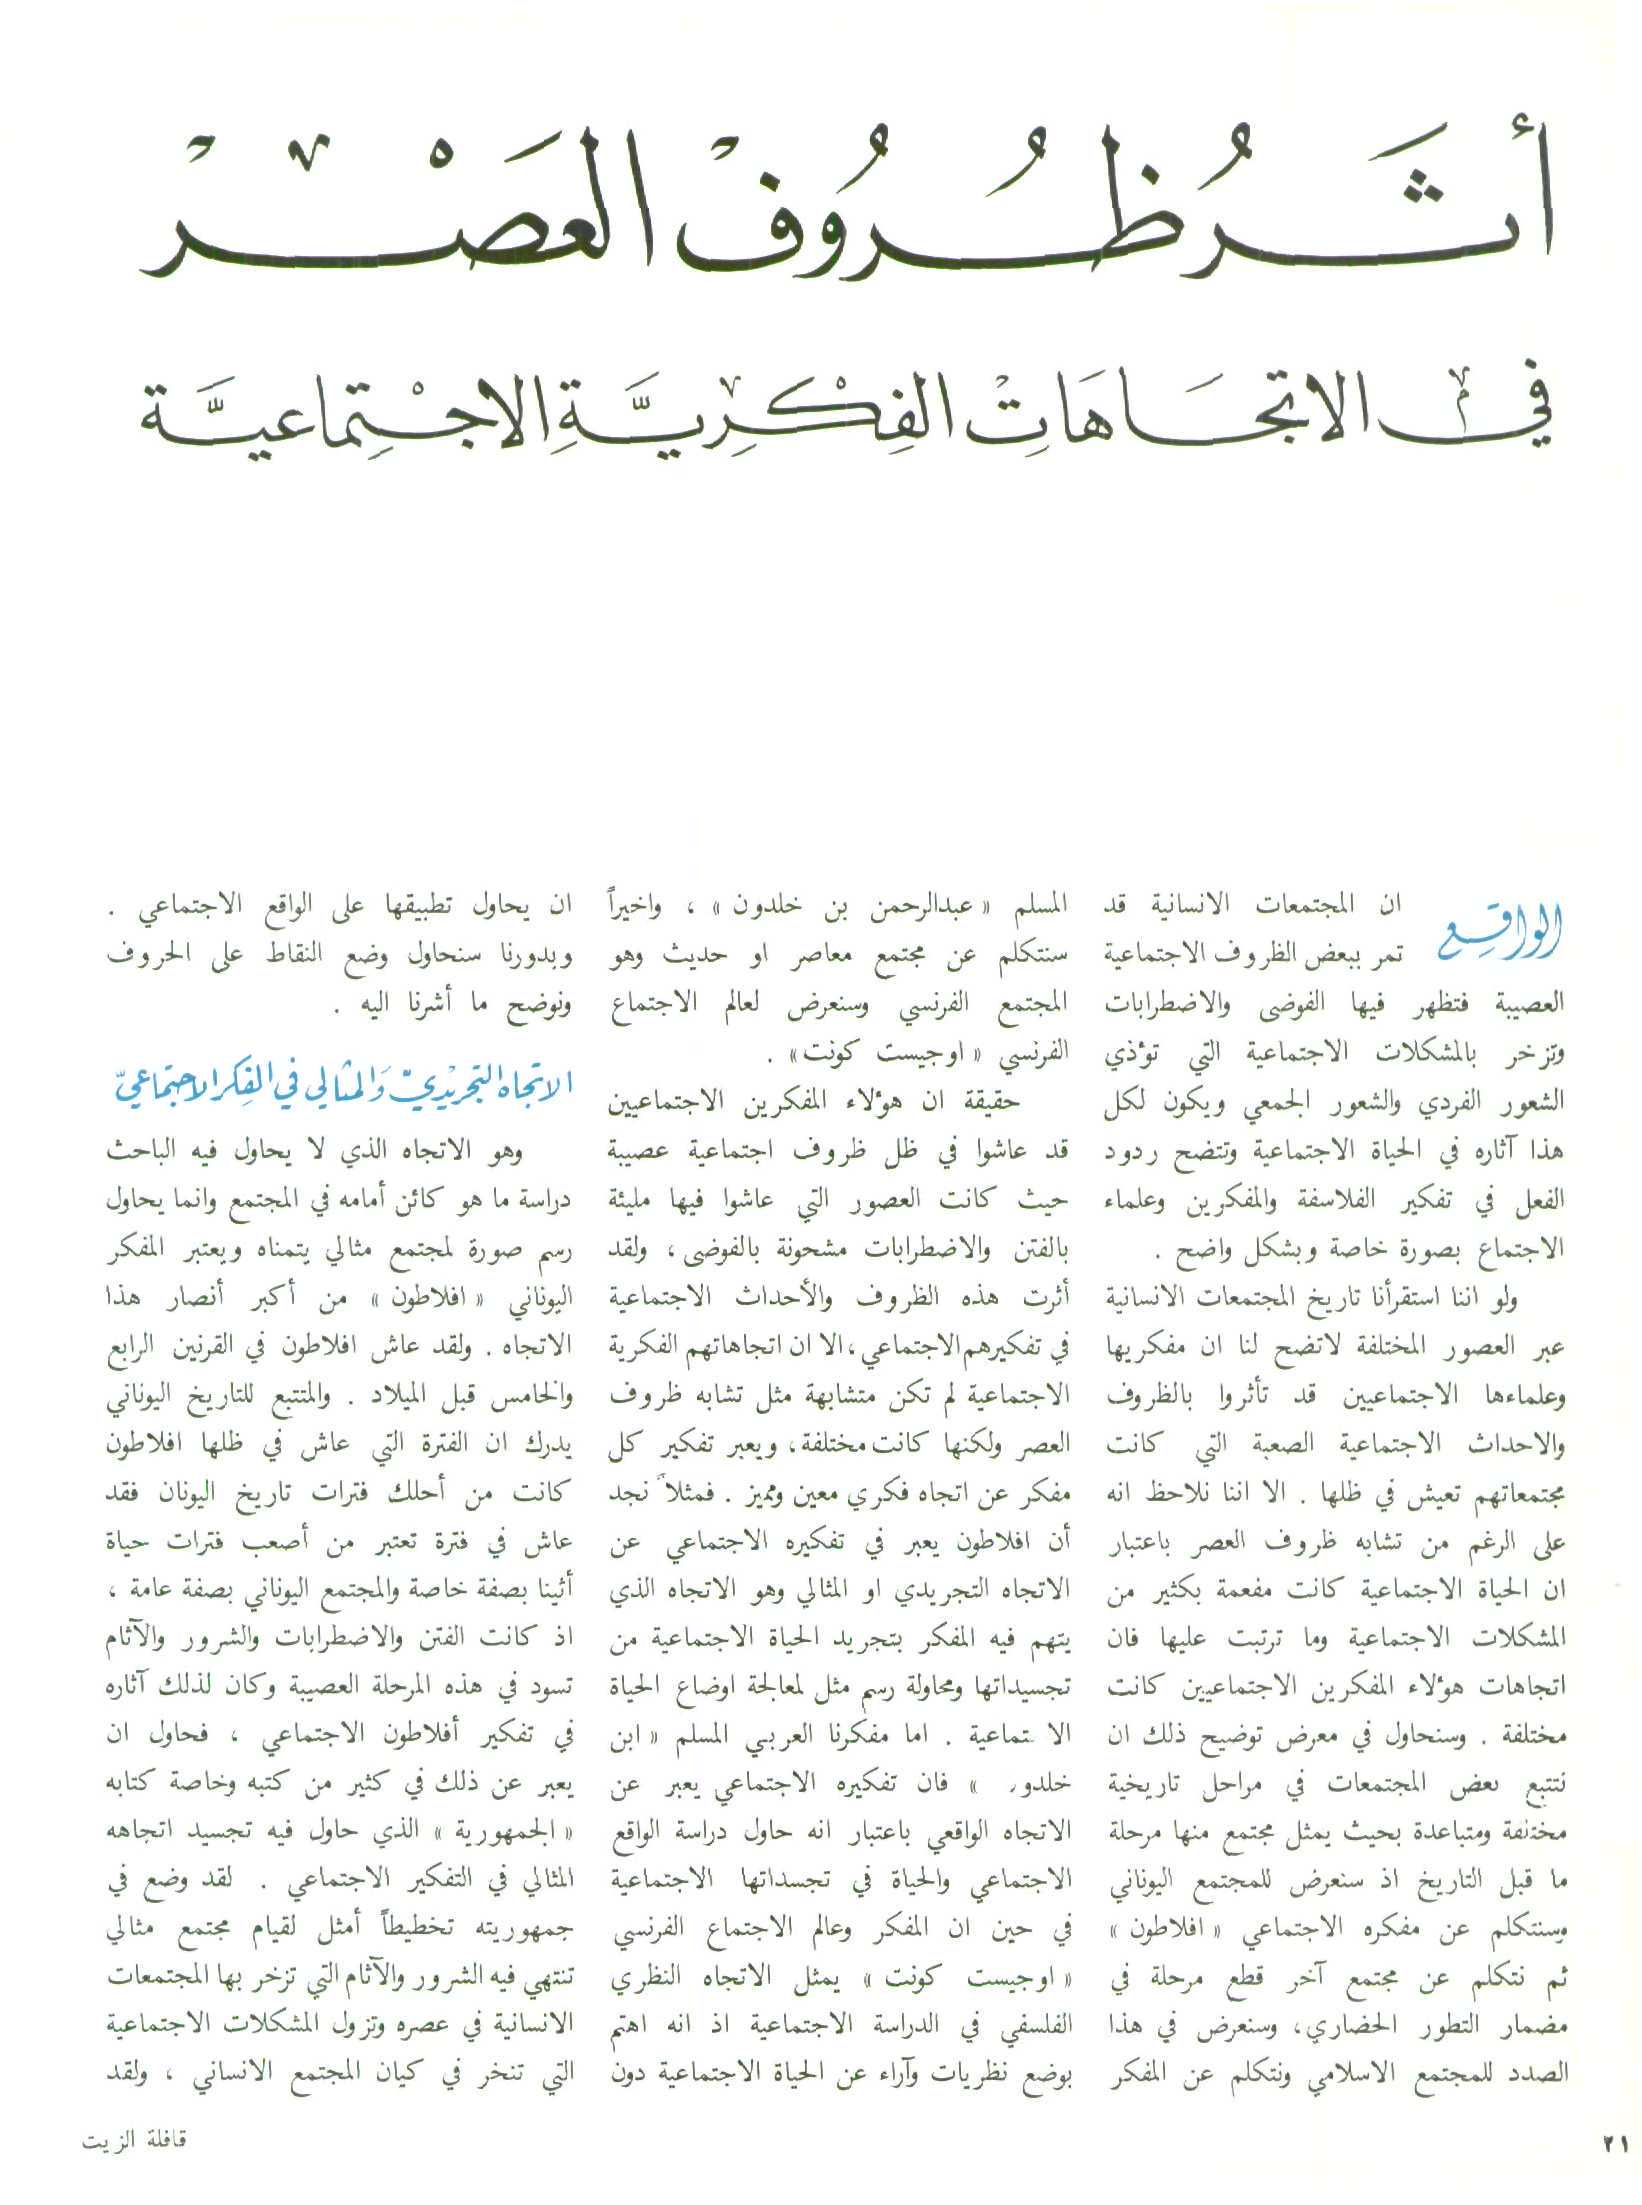 أثر ظروف العصر
في الاتجاهات الفكرية الاجتماعية
الواقع
ان المجتمعات الانسانية قد
تمر ببعض الظروف الاجتماعية
العصيبة فتظهر فيها الفوضى والاضطرابات
وتزخر بالمشكلات الاجتماعية التي تؤذي
الشعور الفردي والشعور الجمعي ويكون لكل
هذا آثاره في الحياة الاجتماعية وتتضح ردود
الفعل في تفكير الفلاسفة والمفكرين وعلماء
الاجتماع بصورة خاصة وبشكل واضح .
ولو اننا استقرأنا تاريخ المجتمعات الانسانية
عبر العصور المختلفة لاتضح لنا ان مفكريها
وعلماءها الاجتماعيين قد تأثروا بالظروف
والاحداث الاجتماعية الصعبة التي كانت
مجتمعاتهم تعيش في ظلها . الا اننا نلاحظ انه
على الرغم من تشابه ظروف العصر باعتبار
ان الحياة الاجتماعية كانت مفعمة بكثير من
المشكلات الاجتماعية وما ترتبت عليها فان
اتجاهات هؤلاء المفكرين الاجتماعيين كانت
مختلفة . وسنحاول في معرض توضيح ذلك ان
نتتبع بعض المجتمعات في مراحل تاريخية
مختلفة ومتباعدة بحيث يمثل مجتمع منها مرحلة
ما قبل التاريخ اذ سنعرض للمجتمع اليوناني
وسنتكلم عن مفكره الاجتماعي « افلاطون »
ثم نتكلم عن مجتمع آخر قطع مرحلة في
مضمار التطور الحضاري، وسنعرض في هذا
الصدد للمجتمع الاسلامي ونتكلم عن المفكر
المسلم « عبدالرحمن بن خلدون » ، واخيراً
سنتكلم عن مجتمع معاصر او حديث وهو
المجتمع الفرنسي وسنعرض لعالم الاجتماع
الفرنسي « اوجيست كونت» .
حقيقة ان هؤلاء المفكرين الاجتماعيين
قد عاشوا في ظل ظروف اجتماعية عصيبة
حيث كانت العصور التي عاشوا فيها مليئة
بالفتن والاضطرابات مشحونة بالفوضى، ولقد
أثرت هذه الظروف والأحداث الاجتماعية
في تفكيرهم الاجتماعي، الا ان اتجاهاتهم الفكرية
الاجتماعية لم تكن متشابهة مثل تشابه ظروف
العصر ولكنها كانت مختلفة، ويعبر تفكير كل
مفكر عن اتجاه فكري معين ومميز . فمثلاً نجد
أن افلاطون يعبر في تفكيره الاجتماعي عن
الاتجاه التجريدي او المثالي وهو الاتجاه الذي
يتهم فيه المفكر بتجريد الحياة الاجتماعية من
تجسيداتها ومحاولة رسم مثل لمعالجة اوضاع الحياة
الا تماعية . اما مفكرنا العربي المسلم « ابن
خلدو » فان تفكيره الاجتماعي يعبر عن
الاتجاه الواقعي باعتبار انه حاول دراسة الواقع
الاجتماعي والحياة في تجسداتها الاجتماعية
في حين ان المفكر وعالم الاجتماع الفرنسي
« اوجيست كونت » يمثل الاتجاه النظري
الفلسفي في الدراسة الاجتماعية اذ انه اهتم
بوضع نظريات وآراء عن الحياة الاجتماعية دون
ان يحاول تطبيقها على الواقع الاجتماعي .
وبدورنا سنحاول وضع النقاط على الحروف
ونوضح ما أشرنا اليه .
الاتجاه التجريدي والمثالي في الفكر الاجتماعي
وهو الاتجاه الذي لا يحاول فيه الباحث
دراسة ما هو كائن أمامه في المجتمع وانما يحاول
رسم صورة لمجتمع مثالي يتمناه ويعتبر المفكر
اليوناني « افلاطون » من أكبر أنصار هذا
الاتجاه . ولقد عاش افلاطون في القرنين الرابع
والخامس قبل الميلاد . والمتتبع للتاريخ اليوناني
يدرك ان الفترة التي عاش في ظلها افلاطون
كانت من أحلك فترات تاريخ اليونان فقد
عاش في فترة تعتبر من أصعب فترات حياة
أثينا بصفة خاصة والمجتمع اليوناني بصفة عامة ،
اذ كانت الفتن والاضطرابات والشرور والآثام
تسود في هذه المرحلة العصيبة وكان لذلك آثاره
في تفكير أفلاطون الاجتماعي ، فحاول ان
يعبر عن ذلك في كثير من كتبه وخاصة كتابه
« الجمهورية » الذي حاول فيه تجسيد اتجاهه
المثالي في التفكير الاجتماعي . لقد وضع في
جمهوريته تخطيطاً أمثل لقيام مجتمع مثالي
تنتهي فيه الشرور والآثام التي تزخر بها المجتمعات
الانسانية في عصره وتزول المشكلات الاجتماعية
التي تنخر في كيان المجتمع الانساني ، ولقد
٢١
قافلة الزيت